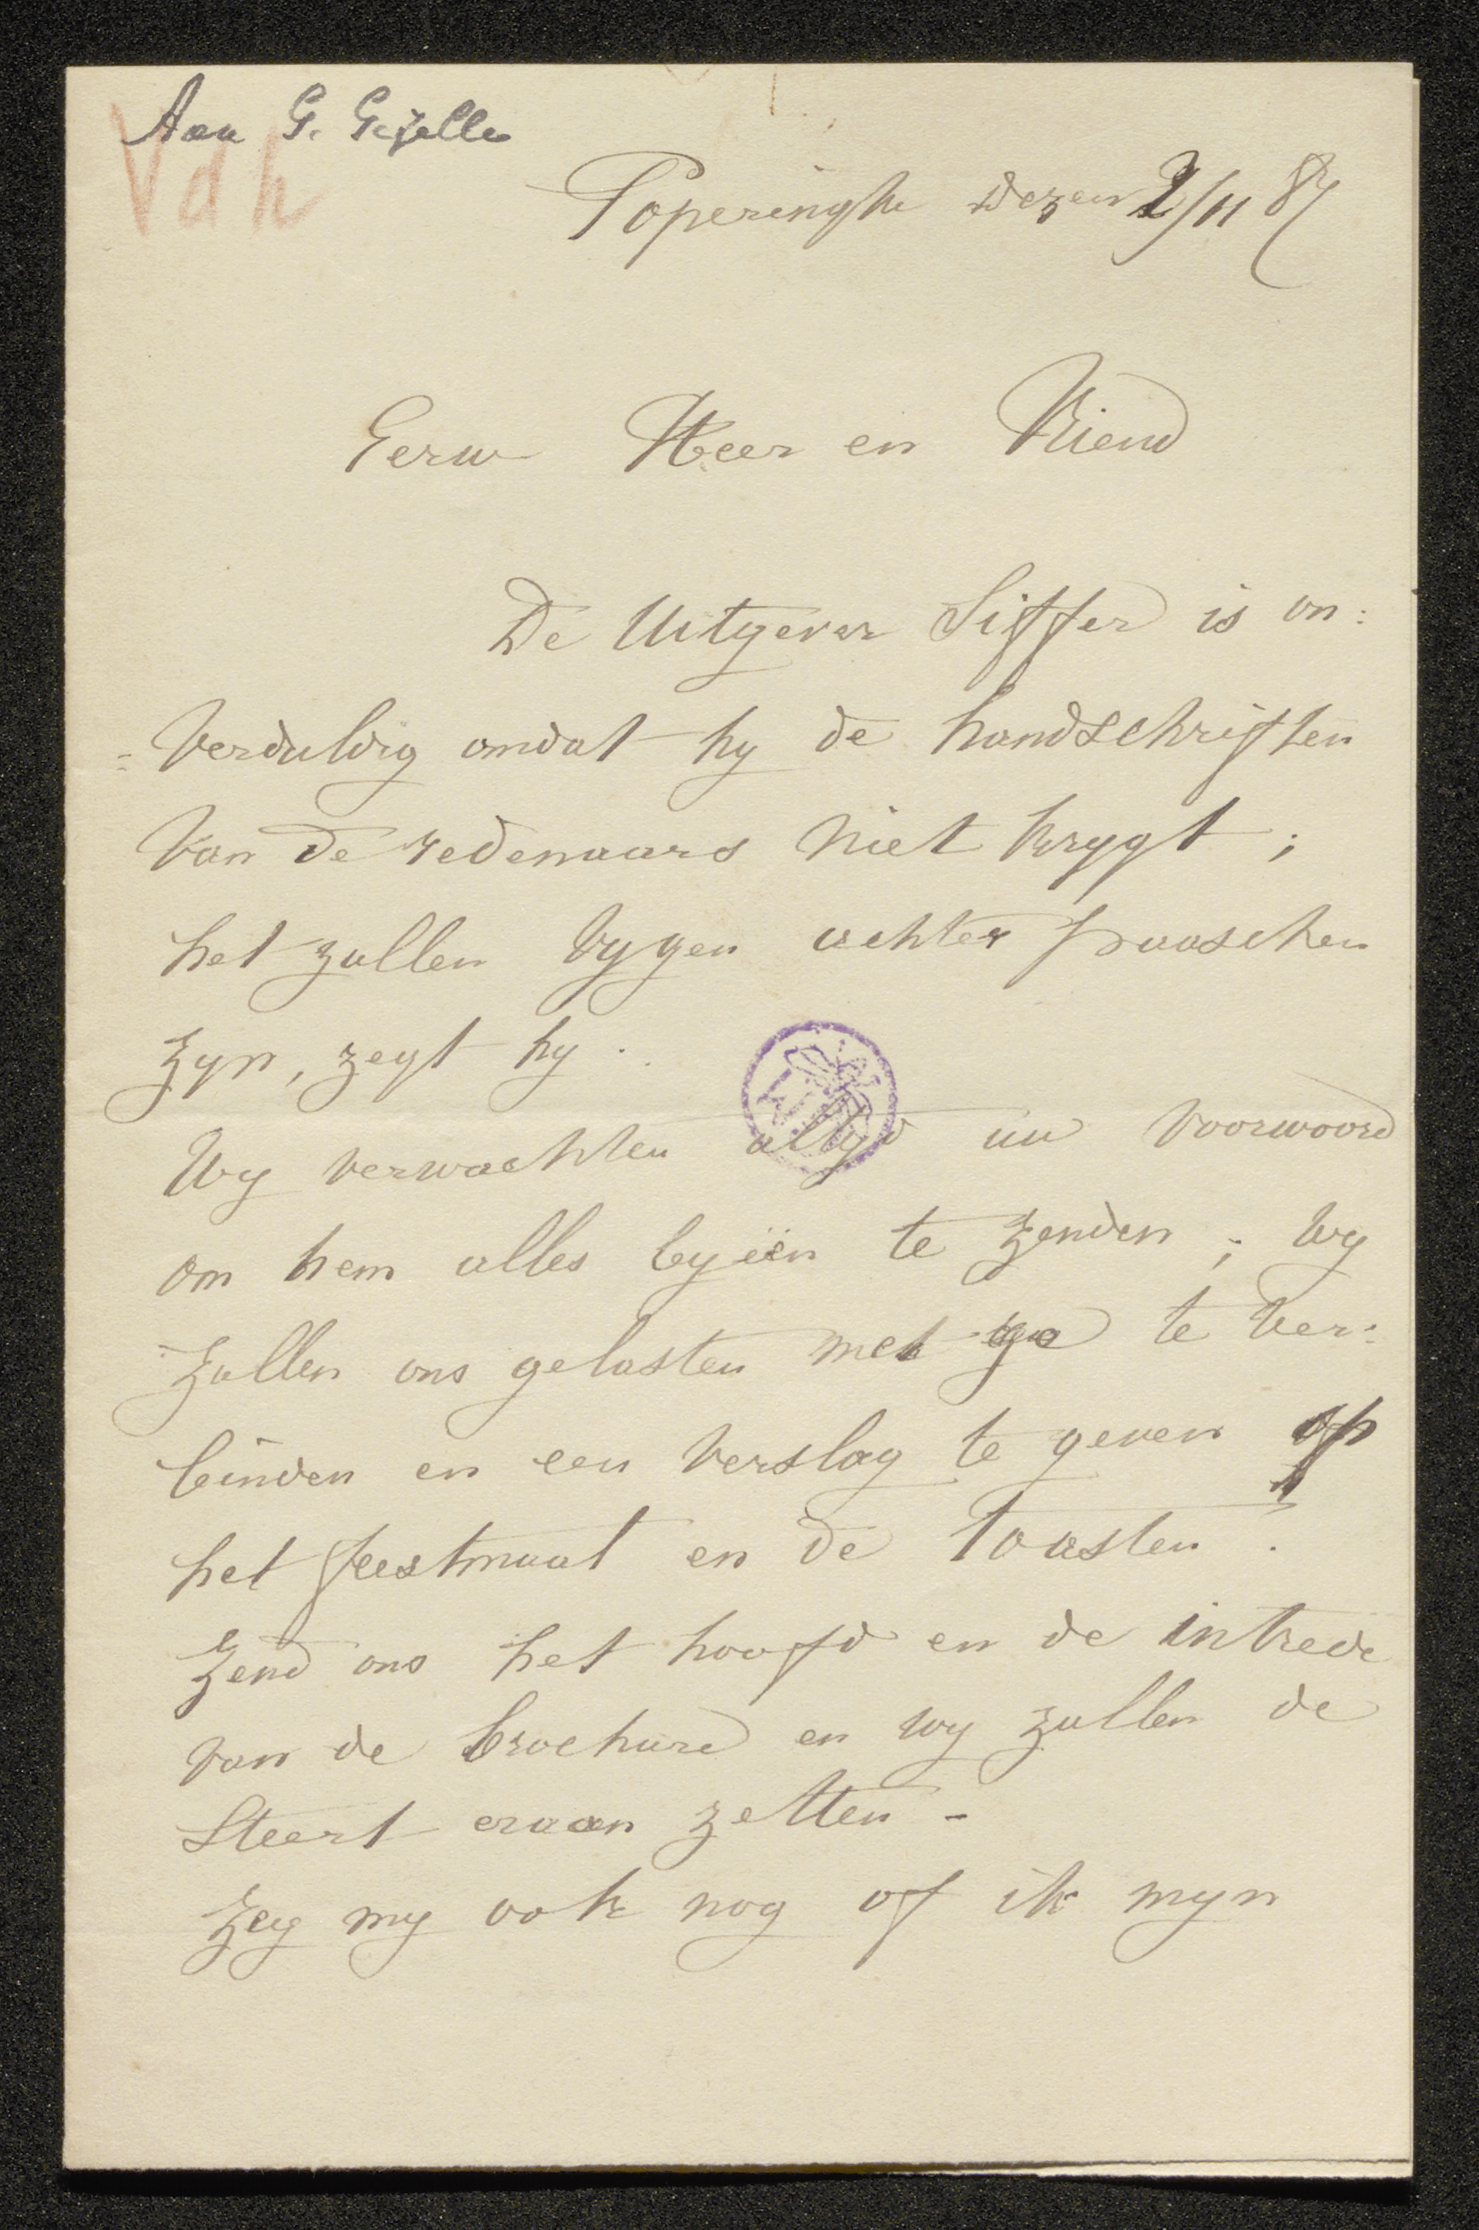 Aan G. Gezelle
Vdh
Poperinghe dezen 2/11 87
Eerw Heer en Vriend
De Uitgever Siffer is on:
:verduldig omdat hy de handschriften
van de redenaars niet krygt ;
het zullen vygen achter paaschen
zyn, zegt hy .
Wy verwachten altyd uw voorwoord
om hem alles byeën te zenden ; wy
zullen ons gelasten met te ver:
binden en een verslag te geven op
het feestmaal en de toasten .
Zend ons het hoofd en de intrede
van de brochure en wy zullen de
steert eraan zetten -
Zeg my ook nog of ik myn